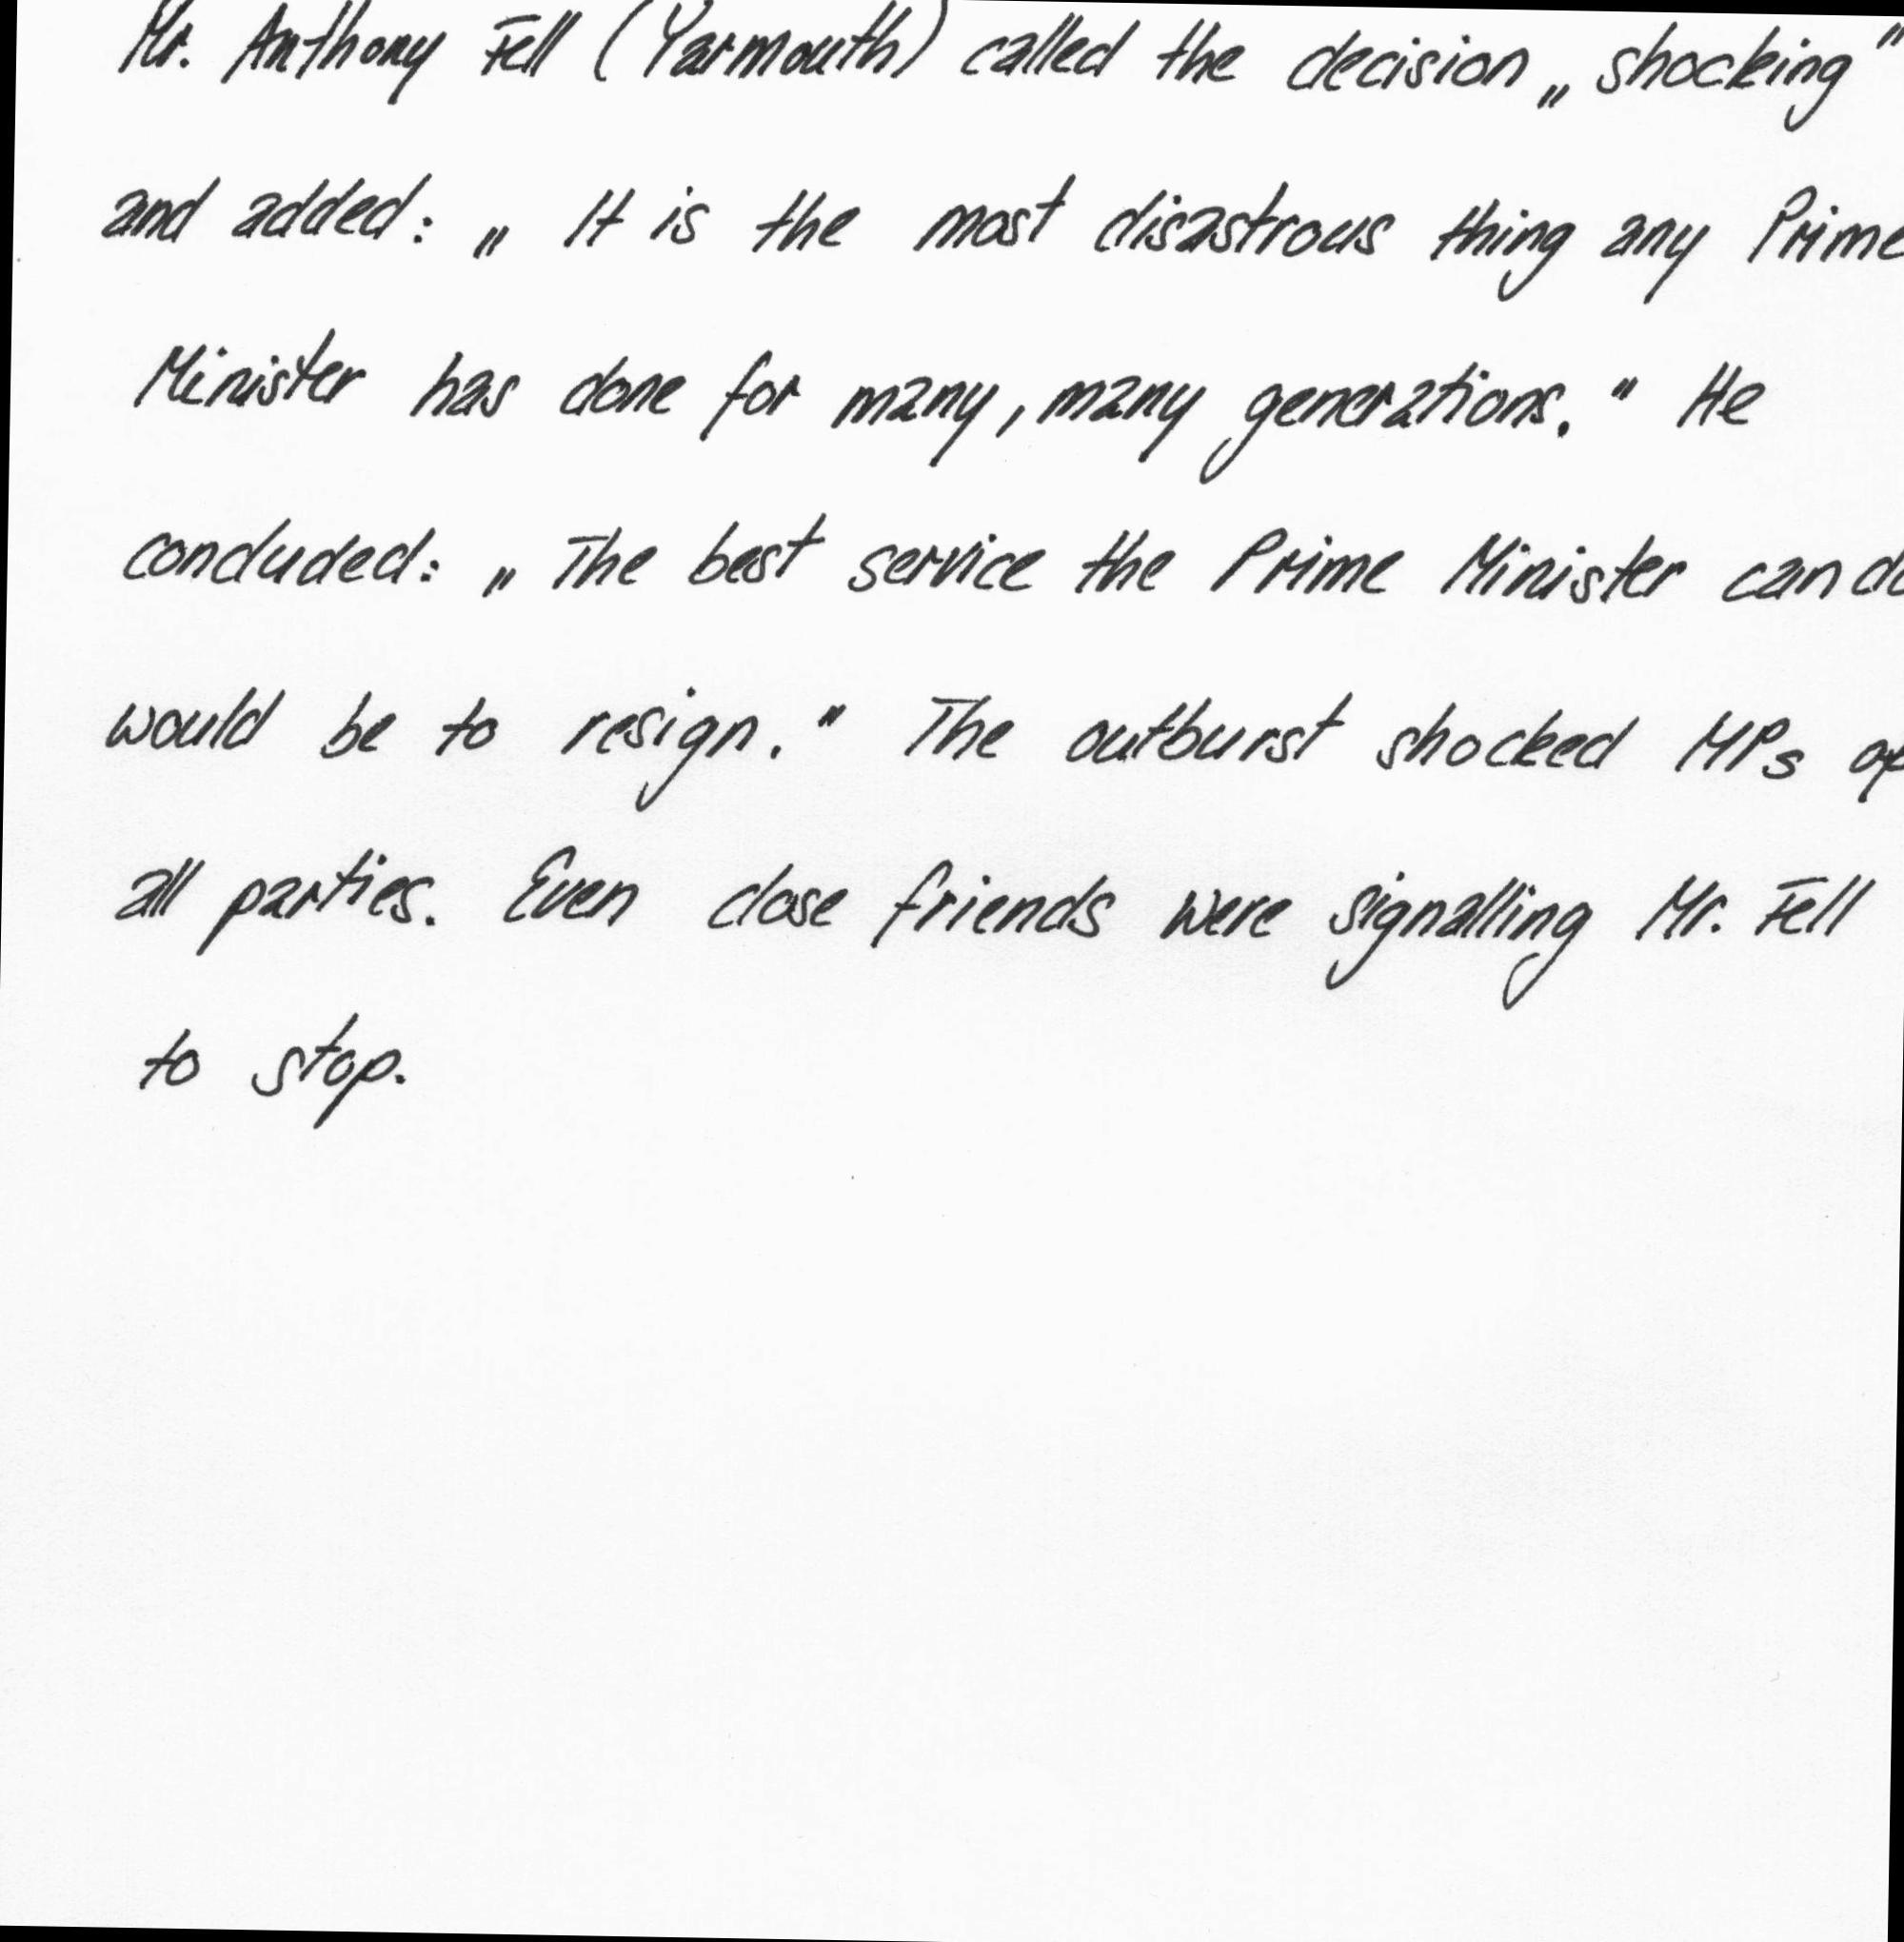 Mr. Anthony Fell (Yarmouth) called the decision „ shocking"
and added: „ It is the most disastrous thing any Prime
Minister has done for many, many generations." He
concluded: „ The best service the Prime Minister can do
would be to resign." The outburst shocked MPs of
all parties. Even close friends were signalling Mr. Fell
to stop.